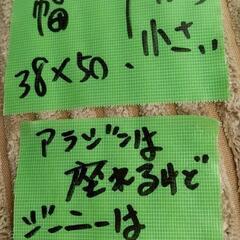 幅
小さい
38×50、
アラジンは
座れるけど
ジーニーは